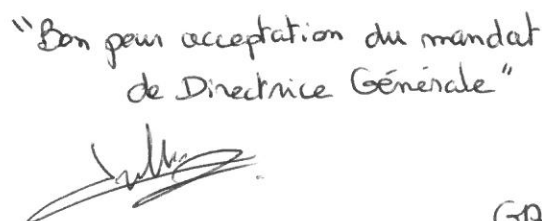 "Bon pour acceptation du mandat
de Directrice Générale"